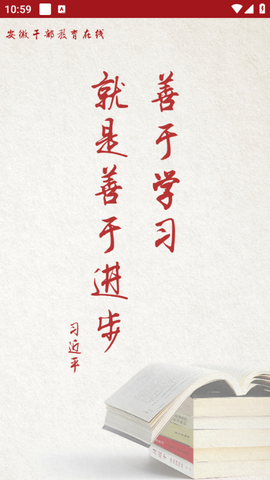 10:59
A
安徽干部教育在线
善于学习
就是善于进步
习近平